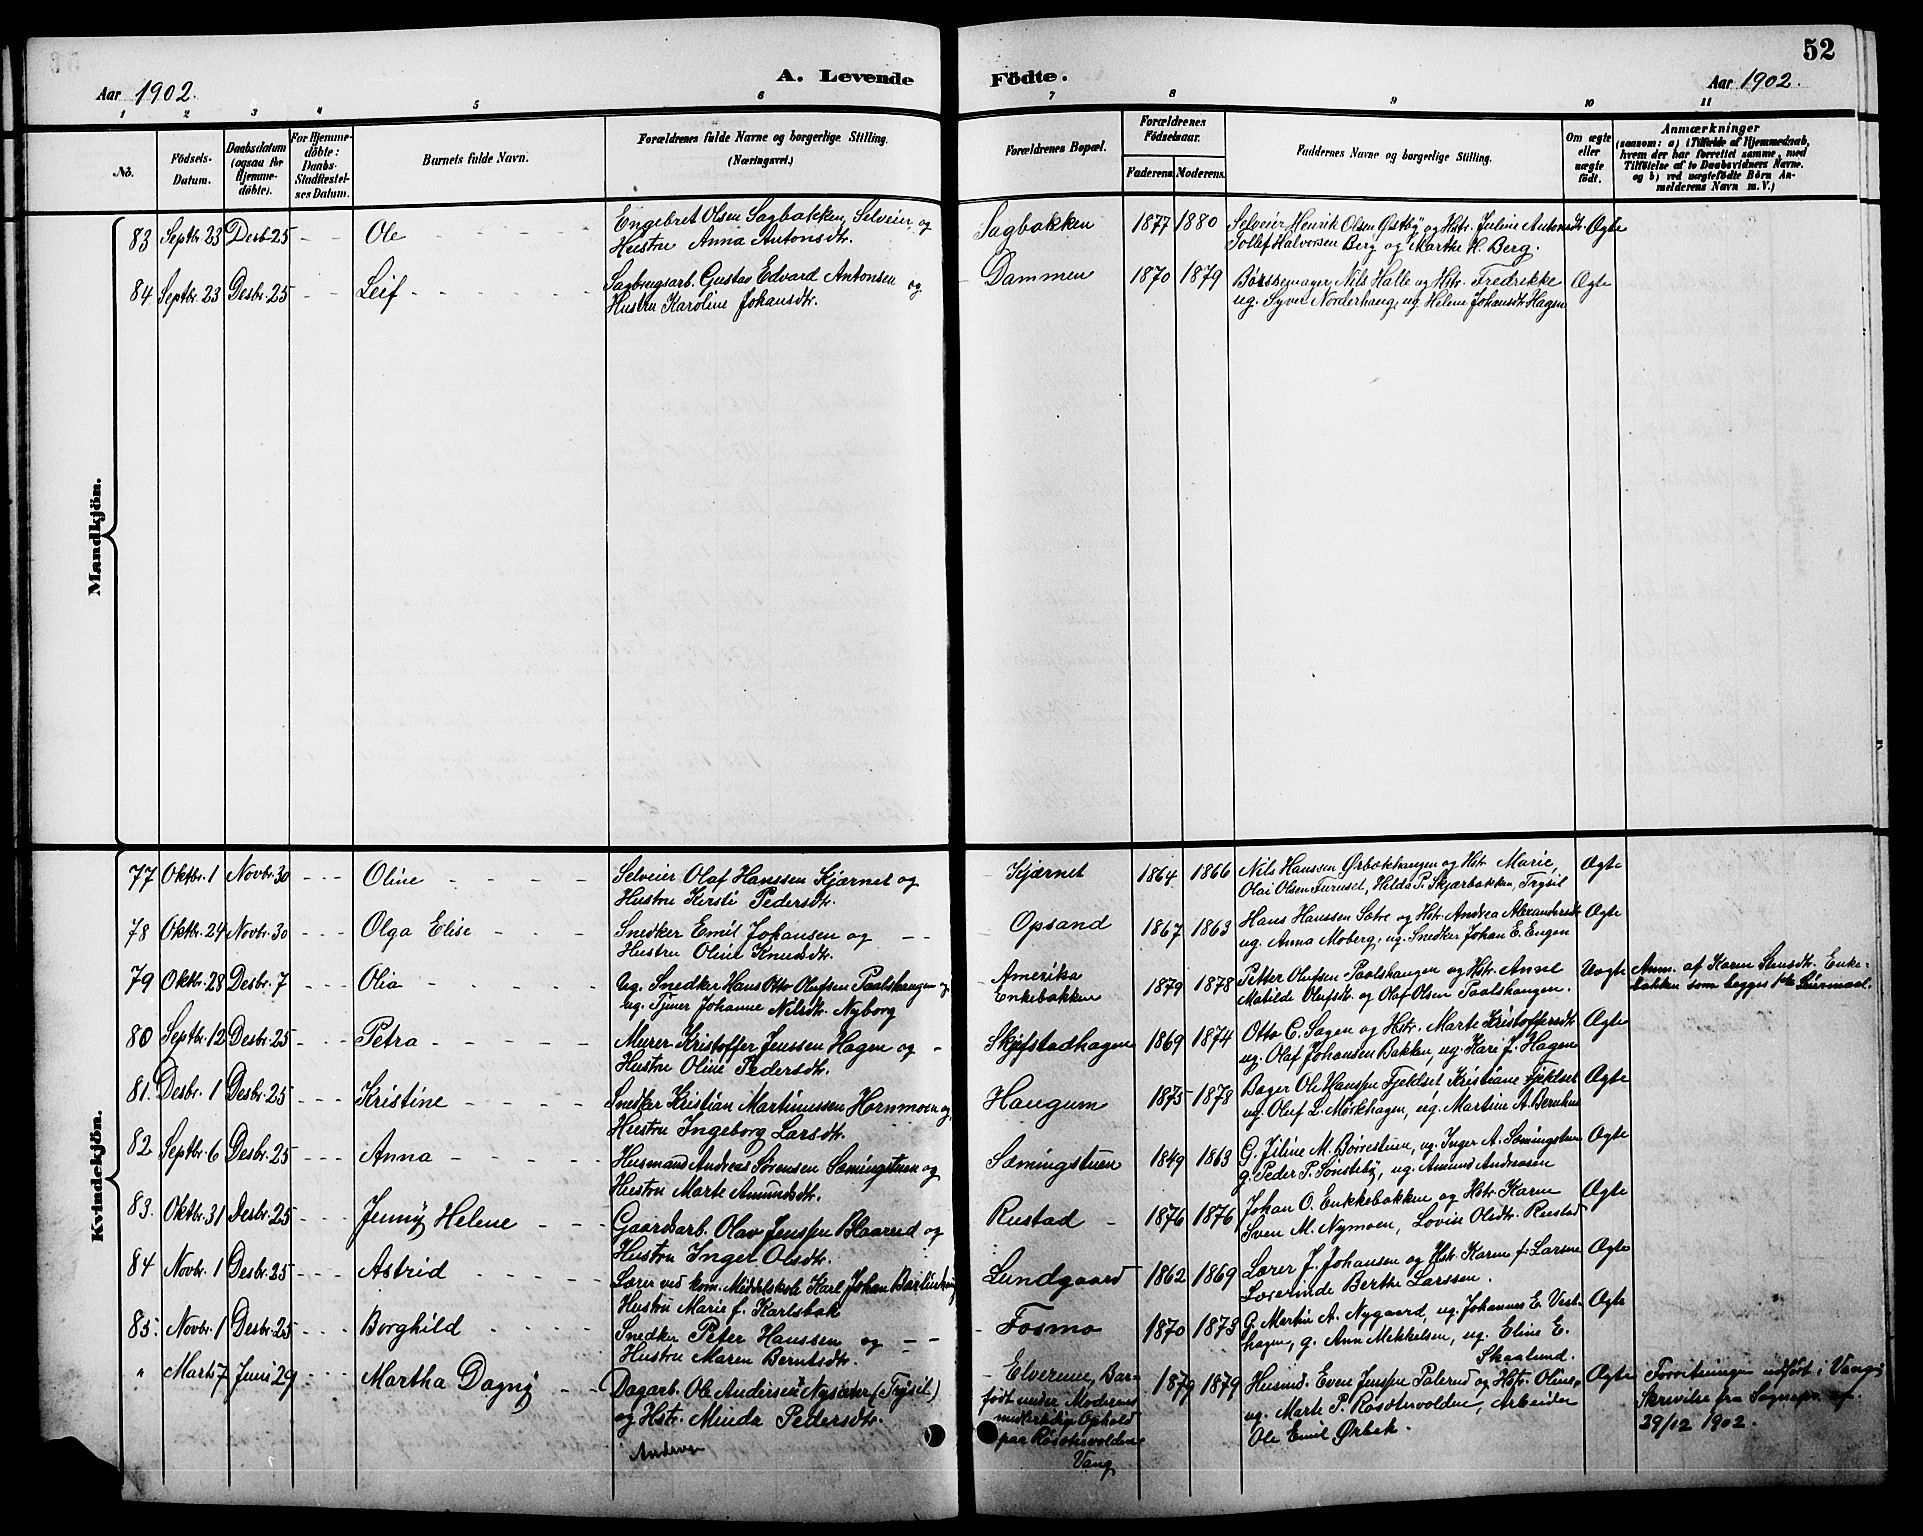 52
A. Levende Födte.
Aar 1902.
Aar 1902.
1 2 3 4 5 6 7 8 9 10 11
No.
Födsels-Datum.
Daabsdatum (ogsaa for Hjemme-döbte).
For Hjemme-döbte: Daabs-Stadfæstel-ses Datum.
Barnets fulde Navn.
Forældrenes fulde Navne og borgerlige Stilling. (Næringsvei.)
Forældrenes Bopæl.
Forældrenes Födselsaar.
Faderens. Moderens.
Faddernes Navne og borgerlige Stilling.
Om ægte eller uægte födt.
Anmærkninger
(saasom: a) i Tilfælde af Hjemmedaab,
hvem der har forrettet samme, med
Tilföielse af to Daabsvidners Navne.
og b) ved uægtefödte Börn An-
melderens Navn m. V.)
Mandkjön.
83 Septbr. 23 Desb. 25 - - Ole - - - - Engebret Olsen Sagbakken, Selveier, og
Hustru Anna Antonsdtr.
Sagbakken 1877 1880 Selveier Henrik Olsen Østby og Hstr. Juline Antonsdtr. Ægte
Tollef Halvorsen Berg og Marthe H. Berg.
84 Septbr. 23 Desbr. 25 - - Leif - - - - Sagbrugsarb. Gustav Edvard Antonsen og
Hustru Karoline Johansdtr.
Dammen 1870 1879 Børssemager Nils Halle og Hstr. Fredrikke Ægte
ug. Syver Norderhaug, ug. Helene Johansdtr. Hagen
Kvindekjön.
77 Oktbr. 1 Novbr. 30 - - - Oline - - - - Selveier Olaf Hanssen Kjærnet og
Hustru Kirsti Pedersdtr.
Kjærnet 1864 1866 Nils Hanssen Ørbækhaugen og Hstr. Marie, Ægte
Olai Olsen Furuset, Hilda P. Skjærbakken, Trysil
78 Oktbr. 24 Novbr. 30 - - - Olga Elise - - - Snedker Emil Johansen og - -
Hustru Oline Knudsdtr.
Opsand 1867 1863 Hans Hanssen Sætre og Hstr. Andrea Alexandersdtr. Ægte
ug. Anna Moberg, ug. Snedker Johan E. Engen
79 Oktbr. 28 Desbr. 7 - - - Olia - - - - Ug. Snedker Hans Otto Olufsen Paalshaugen og
Ug. Tjener Johanne Nilsdtr. Nyborg
Amerika
Enkebakken 1879 1878 Petter Olufsen Paalshaugen og Hstr. Anne Uægte
Matilde Olufsdtr. og Olaf Olsen Paalshaugen.
Anm. af Karen Stensdtr. Enke-
bakken som begges 1ste Leiermaal.
80 Septbr. 12 Desbr. 25 - - - Petra - - - - Murer Kristoffer Jenssen Hagen og -
Hustru Oline Pedersdtr.
Skjefstadhagen 1869 1874 Otto C. Sagen og Hstr. Marte Kristoffersdtr. Ægte
ug. Olaf Johansen Bakken, ug. Kari J. Hagen
81. Desbr. 1 Desbr. 25 - - - Kristine - - - - Snedker Kristian Martinussen Hornmoen og
Hustru Ingeborg Larsdtr.
Haugum 1875 1878 Bager Ole Hanssen Fjeldset Kristiane Fjeldset Ægte
ug. Oluf L. Mørkhagen, ug. Martine A.
82 Septbr. 6 Desbr. 25 - - - Anna - - - - Husmand Andreas Sørensen Sæmingstuen og
Hustru Marte Amundsdtr.
Sæmingstuen 1849 1863 G. Jiline M. Børrestuen, ug. Inger A. Sæmingstuen Ægte
g. Peder P. Sønsteby, ug. Amund Andreasen
83. Oktbr. 31 Desbr. 25 - - Jenny Helene - - - Gaardarb. Olav Jenssen Blaarud og
Hustru Inger Olsdtr.
Rustad - 1876 1876 Johan O. Enkkebakken og Hstr. Karen Ægte
Sven M. Nymoen, Lovise Olsdtr. Rustad
84 Novbr. 1 Desbr. 25 - - - Astrid - - - - Lærer ved kom. Middelskole Karl Johan
Hustru Marie f. Karlsbak
Lundgaard 1862 1869 Lærer J. Johansen og Hstr. Karen f. Larsen Ægte
Lærerinde Berthe Larssen.
85. Novbr. 1 Desbr. 25 - - - Borghild - - - - Snedker Peter Hanssen og - -
Hustru Maren Berntsdtr.
Fosmo 1870 1873 G. Martin A. Nygaard, ug. Johannes E. Vest- Ægte
hagen, g. Ann Mikkelsen, ug. Eline E.
Skaalund.
" Marts 7 Juni 29 Martha Dagny - - Dagarb. Ole Andersen Nysæter (Trysil)
og Hstr. Minda Pedersdtr.
Andersen
Elverum, Bar.
født under Moderens
midlertidige Ophold
paa Røsætervolden
Vang
1879 1879 Husmd. Even Jenssen Palerud og Hstr. Oline, Ægte
ug. Marte P. Rosætervolden, Arbeider
Ole Emil Ørbek.
Forretningen udført i Vang
Skrivelse fra Sognepr.
29/12 1902.